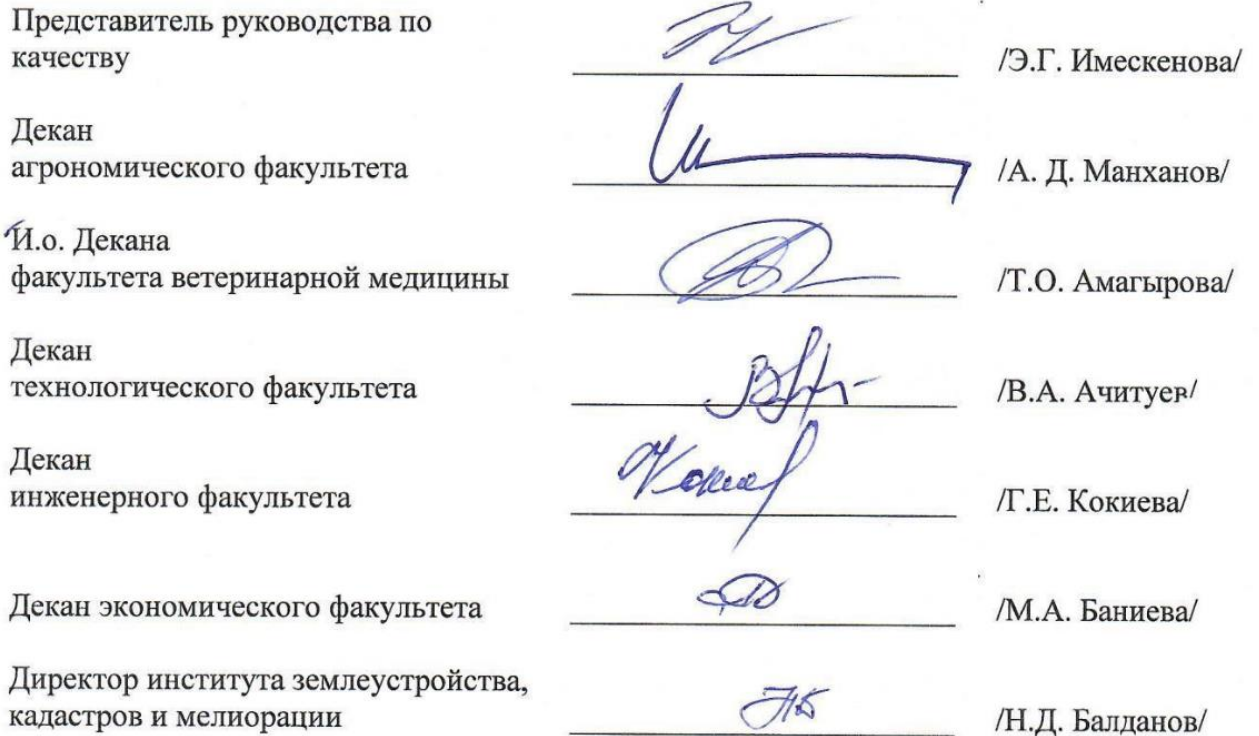 Представитель руководства по
качеству /Э.Г. Имескенова/
Декан
агрономического факультета /А. Д. Манханов/
И.о. Декана
факультета ветеринарной медицины /Т.О. Амагырова/
Декан
технологического факультета /В.А. Ачитуев/
Декан
инженерного факультета /Г.Е. Кокиева/
Декан экономического факультета /М.А. Баниева/
Директор института землеустройства,
кадастров и мелиорации /Н.Д. Балданов/